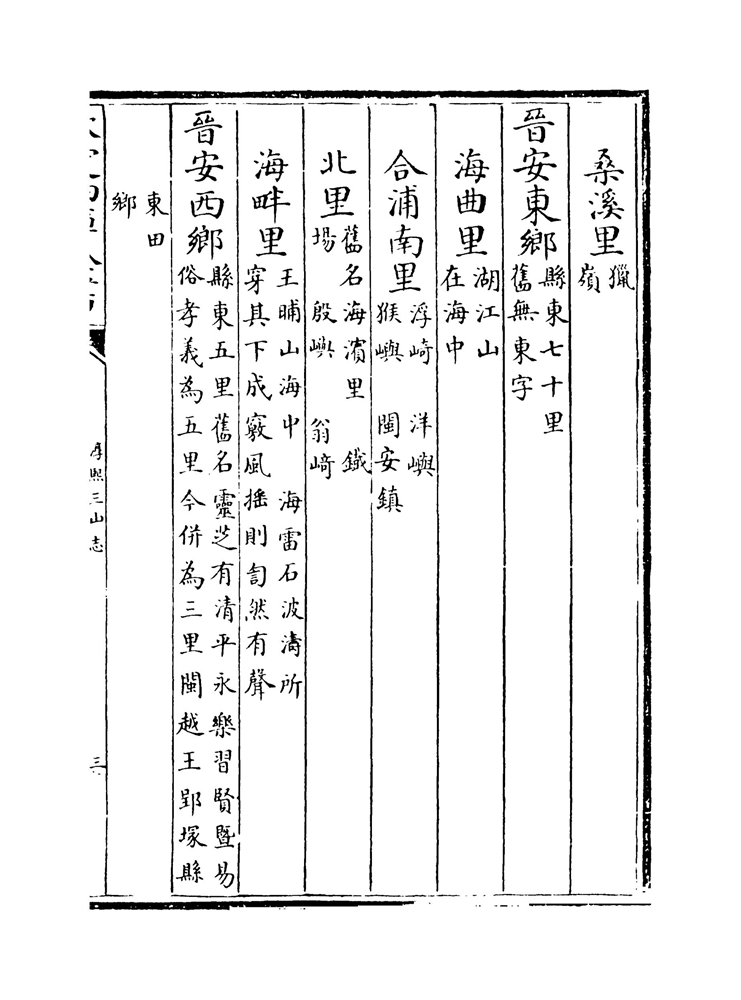 桑溪里獵嶺
晉安東鄉縣東七十里舊無東字
海曲里湖江山在海中
合浦南里浮崎　洋嶼猴嶼　閩安鎮
北里舊名海濱里　鐵場　殷嶼　翁崎
海畔里王晡山海中　海雷石波濤所穿其下成竅風摇則訇然有聲
晉安西鄉縣東五里舊名靈芝有清平永樂習賢暨易俗孝義為五里今併為三里閩越王郢塚縣
東田鄉
淳熙三山志
三